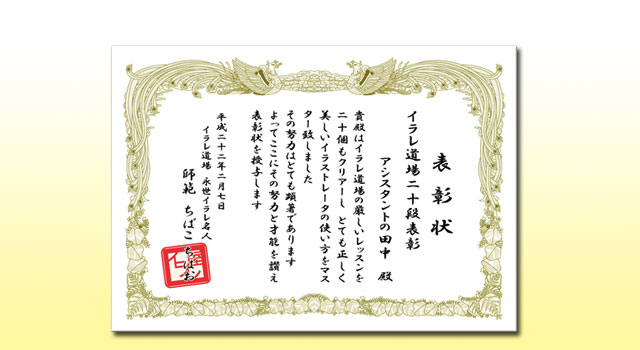 表彰状
イラレ道場二十段表彰
アシスタントの田中 殿
貴殿はイラレ道場の厳しいレッスンを
二十個もクリアーし とても正しく
美しいイラストレータの使い方をマス
ター致しました
その努力はとても顕著であります
よってここにその努力と才能を讃え
表彰状を授与します
平成二十二年二月七日
イラレ道場 永世イラレ名人
師範 ちばこ ちばお